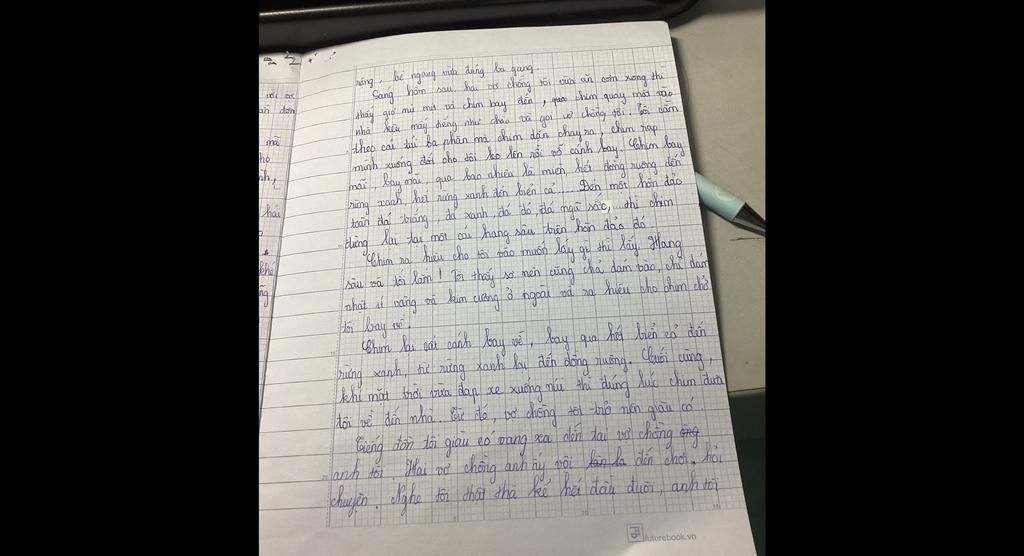 rộng, bề ngang vừa đúng ba gang.
Sang hôm sau hai vợ chồng tôi vừa ăn cơm xong thì
thấy gió mù mịt và chim bay đến, chim quay mặt vào
nhà kêu mấy tiếng như chào và gọi vợ chồng tôi. Tôi cầm
theo cái túi ba phân mà chim dặn chạy ra, chim rạp
mình xuống đất cho tôi leo lên rồi vỗ cánh bay. Chim bay
mãi, bay mãi, qua bao nhiêu là miền hết đồng ruộng đến
rừng xanh, hết rừng xanh đến biển cả.... Đến một hòn đảo
toàn đá trắng, đá xanh, đá đỏ, đá ngũ sắc, thì chim
dừng lại tại một cái hang sâu trên hòn đảo đó.
Chim ra hiệu cho tôi vào muốn lấy gì thì lấy. Hang
sâu và tối lắm! Tôi thấy sợ nên cũng chả dám vào, chỉ dám
nhặt ít vàng và kim cương ở ngoài và ra hiệu cho chim chở
tôi bay về.
Chim lại cất cánh bay về, bay qua hết biển cả đến
rừng xanh, từ rừng xanh lại đến đồng ruộng. Cuối cùng,
khi mặt trời vừa đạp xe xuống núi thì đúng lúc chim đưa
tôi về đến nhà. Từ đó, vợ chồng tôi trở nên giàu có.
Tiếng đồn tôi giàu có vang xa đến tai vợ chồng ông
anh tôi. Hai vợ chồng anh ấy vội lân la đến chơi, hỏi
chuyện. Nghe tôi thật thà kể hết đầu đuôi, anh tôi
futurebook.vn